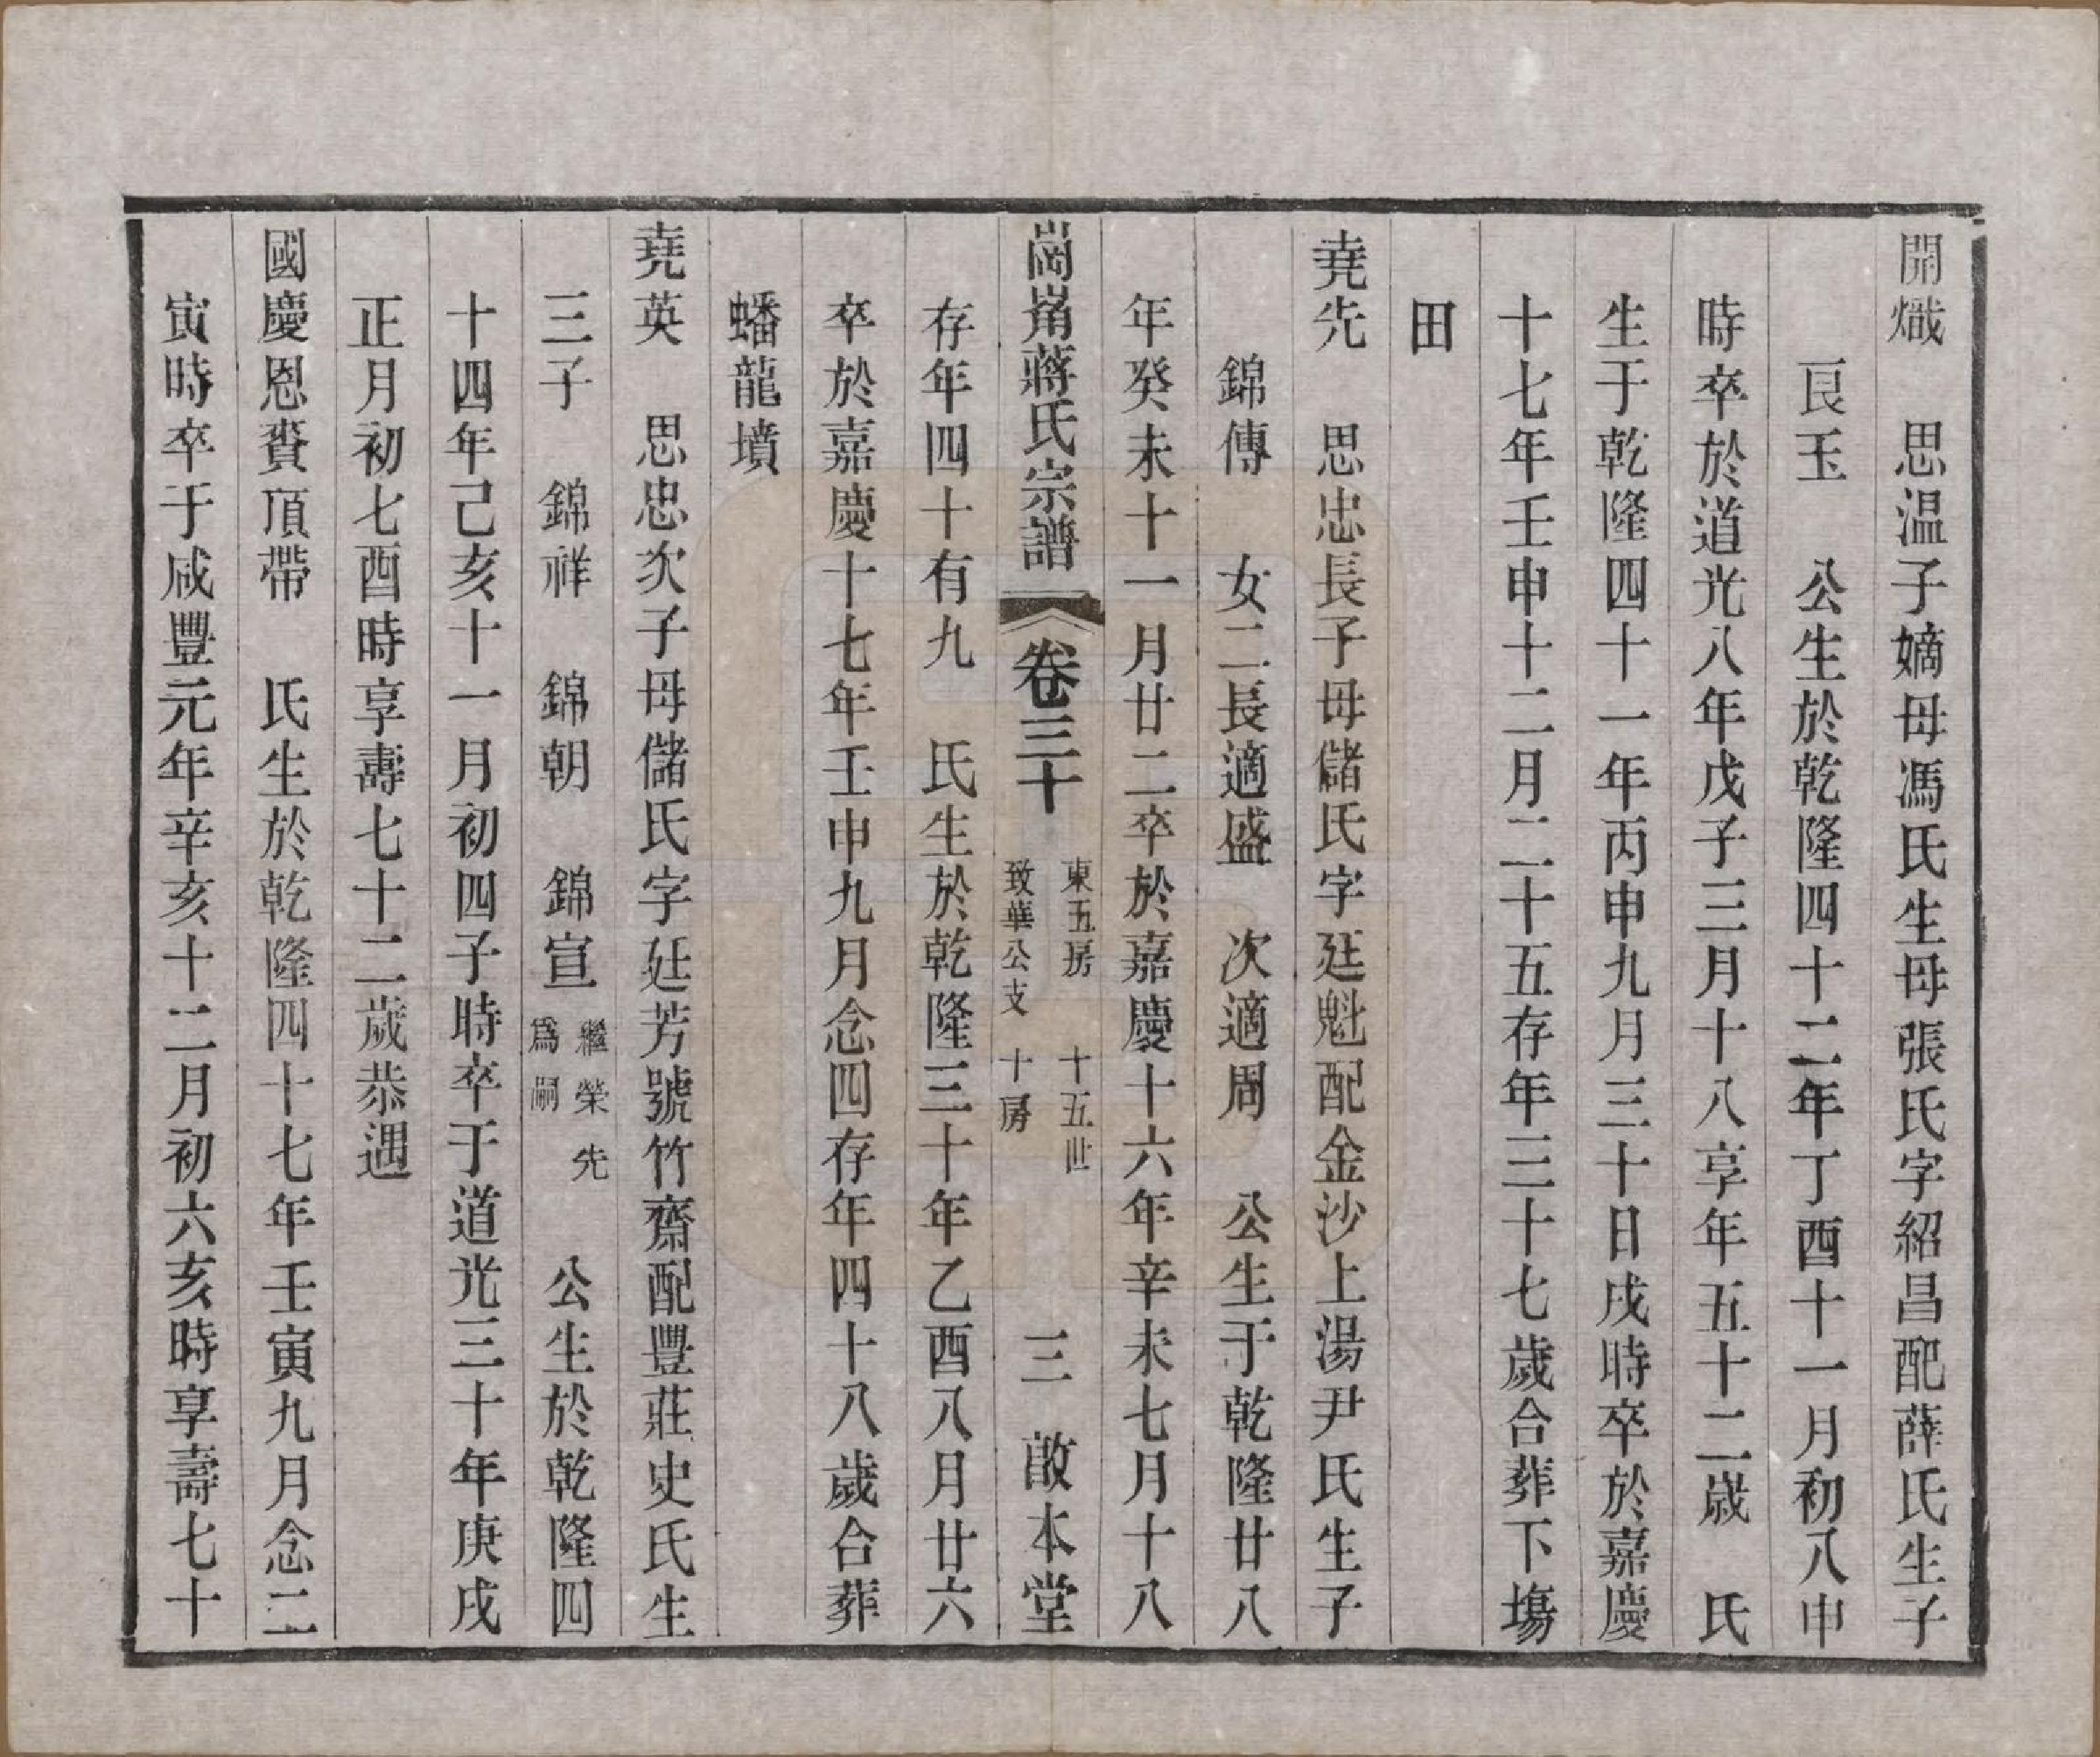 開熾　思温子嫡母馮氏生母張氏字紹昌配薛氏生子
良玉　公生於乾隆四十二年丁酉十一月初八申
時卒於道光八年戊子三月十八享年五十二歲　氏
生于乾隆四十一年丙申九月三十日戌時卒於嘉慶
十七年壬申十二月二十五存年三十七歲合葬下塲
田
堯先　思忠長子母儲氏字廷魁配金沙上湯尹氏生子
錦傳　女二長適盛　次適周　公生于乾隆廿八
年癸未十一月廿二卒於嘉慶十六年辛未七月十八
崗崅蔣氏宗譜　卷三十　東五房　十五世
致華公支　十房　三　啟本堂
存年四十有九　氏生於乾隆三十年乙酉八月廿六
卒於嘉慶十七年壬申九月念四存年四十八歲合葬
蟠龍墳
堯英　思忠次子母儲氏字廷芳號竹齋配豐莊史氏生
三子　錦祥　錦朝　錦宣　繼榮先
爲嗣　公生於乾隆四
十四年己亥十一月初四子時卒于道光三十年庚戌
正月初七酉時享壽七十二歲恭遇
國慶恩賚頂帶　氏生於乾隆四十七年壬寅九月念二
寅時卒于咸豐元年辛亥十二月初六亥時享壽七十